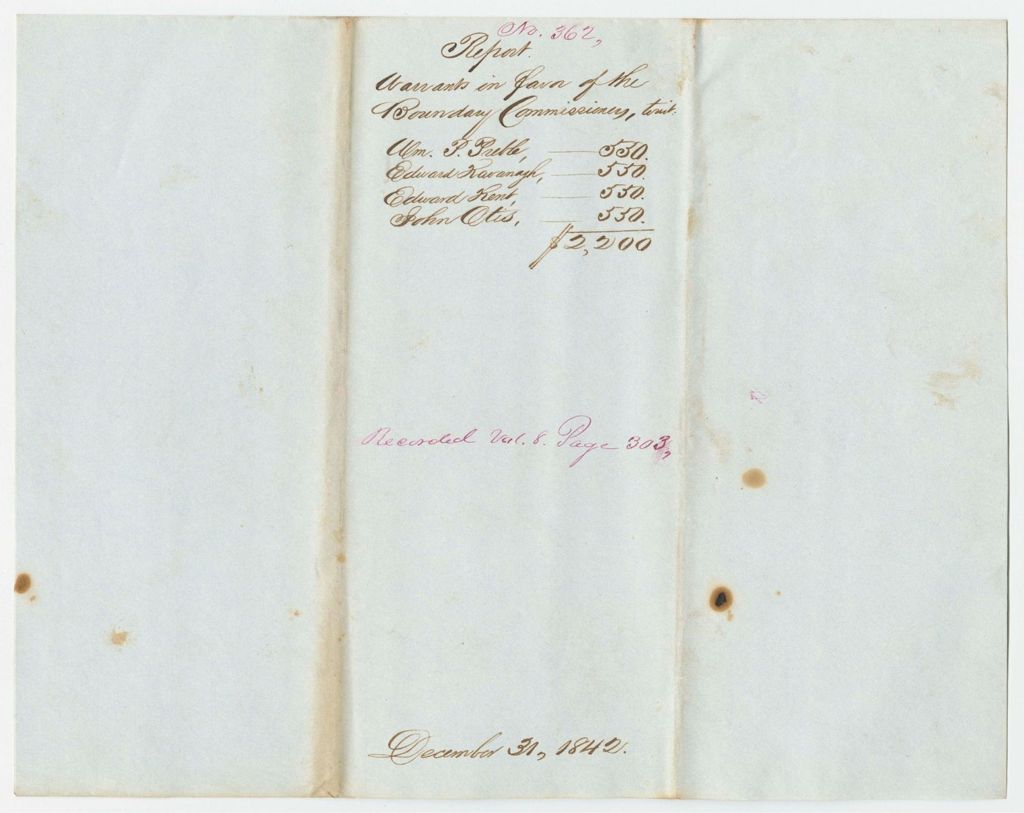 No. 362,
Report.
Warrants in favor of the
Boundary Commissioners, twit.
Wm. P. Preble, — 550.
Edward Kavanagh, — 550.
Edward Kent, — 550.
John Otis, — 550.
$2,200
Recorded Vol. 8. Page 303,
December 31, 1842.